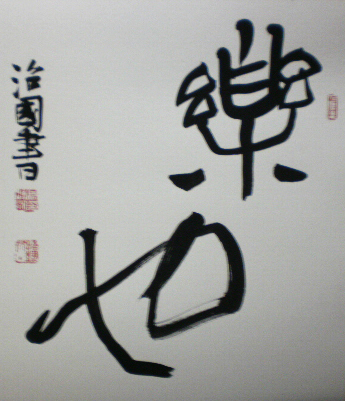 樂也
治國書